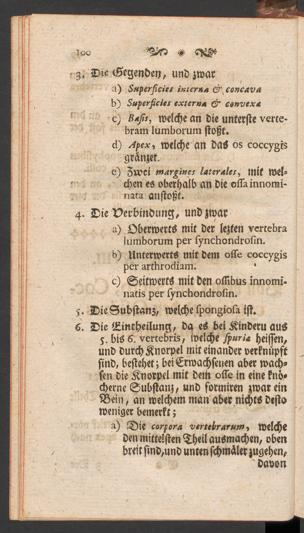 100
3. Die Gegenden, und zwar
a) Superficies interna & concava
b) Superficies externa & convexa
c) Basis, welche an die unterste verte-
bram lumborum stoßt.
d) Apex, welche an das os coccygis
gränzet.
e) Zwei margines laterales, mit wel-
chen es oberhalb an die ossa innomi-
nata anstoßt.
4. Die Verbindung, und zwar
a) Oberwerts mit der lezten vertebra
lumborum per synchondrosin.
b) Unterwerts mit dem osse coccygis
per arthrodiam.
c) Seitwerts mit den ossibus innomi-
natis per synchondrosin.
5. Die Substanz, welche spongiosa ist.
6. Die Eintheilung, da es bei Kindern aus
5. bis 6. vertebris, welche spuria heissen,
und durch Knorpel mit einander verknüpft
sind, bestehet; bei Erwachsenen aber wach-
sen die Knorpel mit dem osse in eine knö-
cherne Substanz, und formiren zwar ein
Bein, an welchem man aber nichts desto
weniger bemerkt;
a) Die corpora vertebrarum, welche
den mittelsten Theil ausmachen, oben
breit sind, und unten schmäler zugehen,
davon